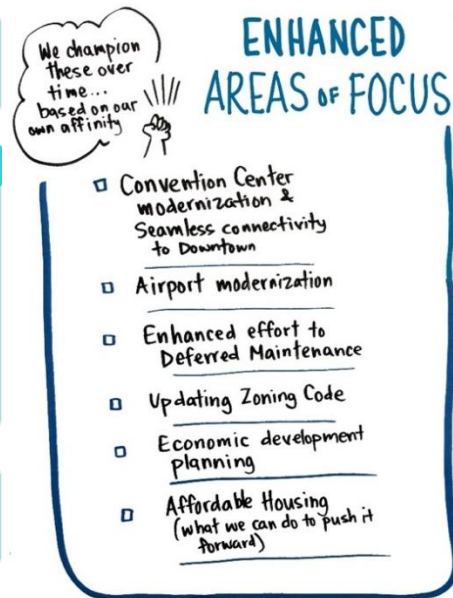 We champion
these over
time...
based on our
own affinity
ENHANCED
AREAS OF FOCUS
Convention Center
modernization &
Seamless connectivity
to Downtown
Airport modernization
Enhanced effort to
Deferred Maintenance
Updating Zoning Code
Economic development
planning
Affordable Housing
(what we can do to push it
forward)